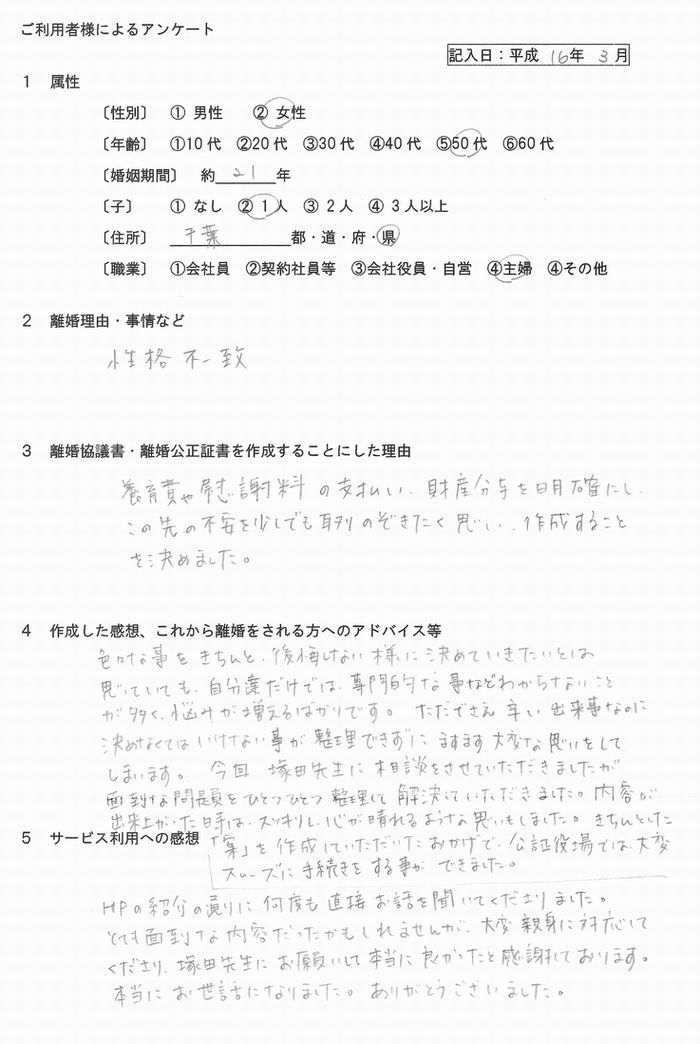 ご利用者様によるアンケート
記入日:平成 16年 3月
1 属性
〔性別〕 ① 男性 ② 女性
〔年齢〕 ①10代 ②20代 ③30代 ④40代 ⑤50代 ⑥60代
〔婚姻期間〕 約 21 年
〔子〕 ① なし ② 1人 ③ 2人 ④ 3人以上
〔住所〕 千葉 都・道・府・県
〔職業〕 ①会社員 ②契約社員等 ③会社役員・自営 ④主婦 ④その他
2 離婚理由・事情など
性格不一致
3 離婚協議書・離婚公正証書を作成することにした理由
養育費や慰謝料の支払い、財産分与を明確にし、
この先の不安を少しでも取りのぞきたく思い、作成すること
を決めました。
4 作成した感想、これから離婚をされる方へのアドバイス等
色々な事をきちんと、後悔しない様に決めていきたいとは
思っていても、自分達だけでは、専門的な事などわからないこと
が多く、悩みが増えるばかりです。ただでさえ辛い出来事なのに
決めなくてはいけない事が整理できずにますます大変な思いをして
しまいます。今回塚田先生に相談をさせていただきましたが
面到な問題をひとつひとつ整理して解決していただきました。内容が
出来上がった時は、スッキリし、心が晴れるような思いもしました。きちんとした
「案」を作成していただいたおかげで、公証役場では、大変
スムーズに手続きをする事ができました。
5 サービス利用への感想
HPの紹介の通りに何度も直接お話を聞いてくださりました。
とても面到な内容だったかもしれませんが、大変親身に対応して
くださり、塚田先生にお願いして本当に良かったと感謝しております。
本当にお世話になりました。ありがとうございました。